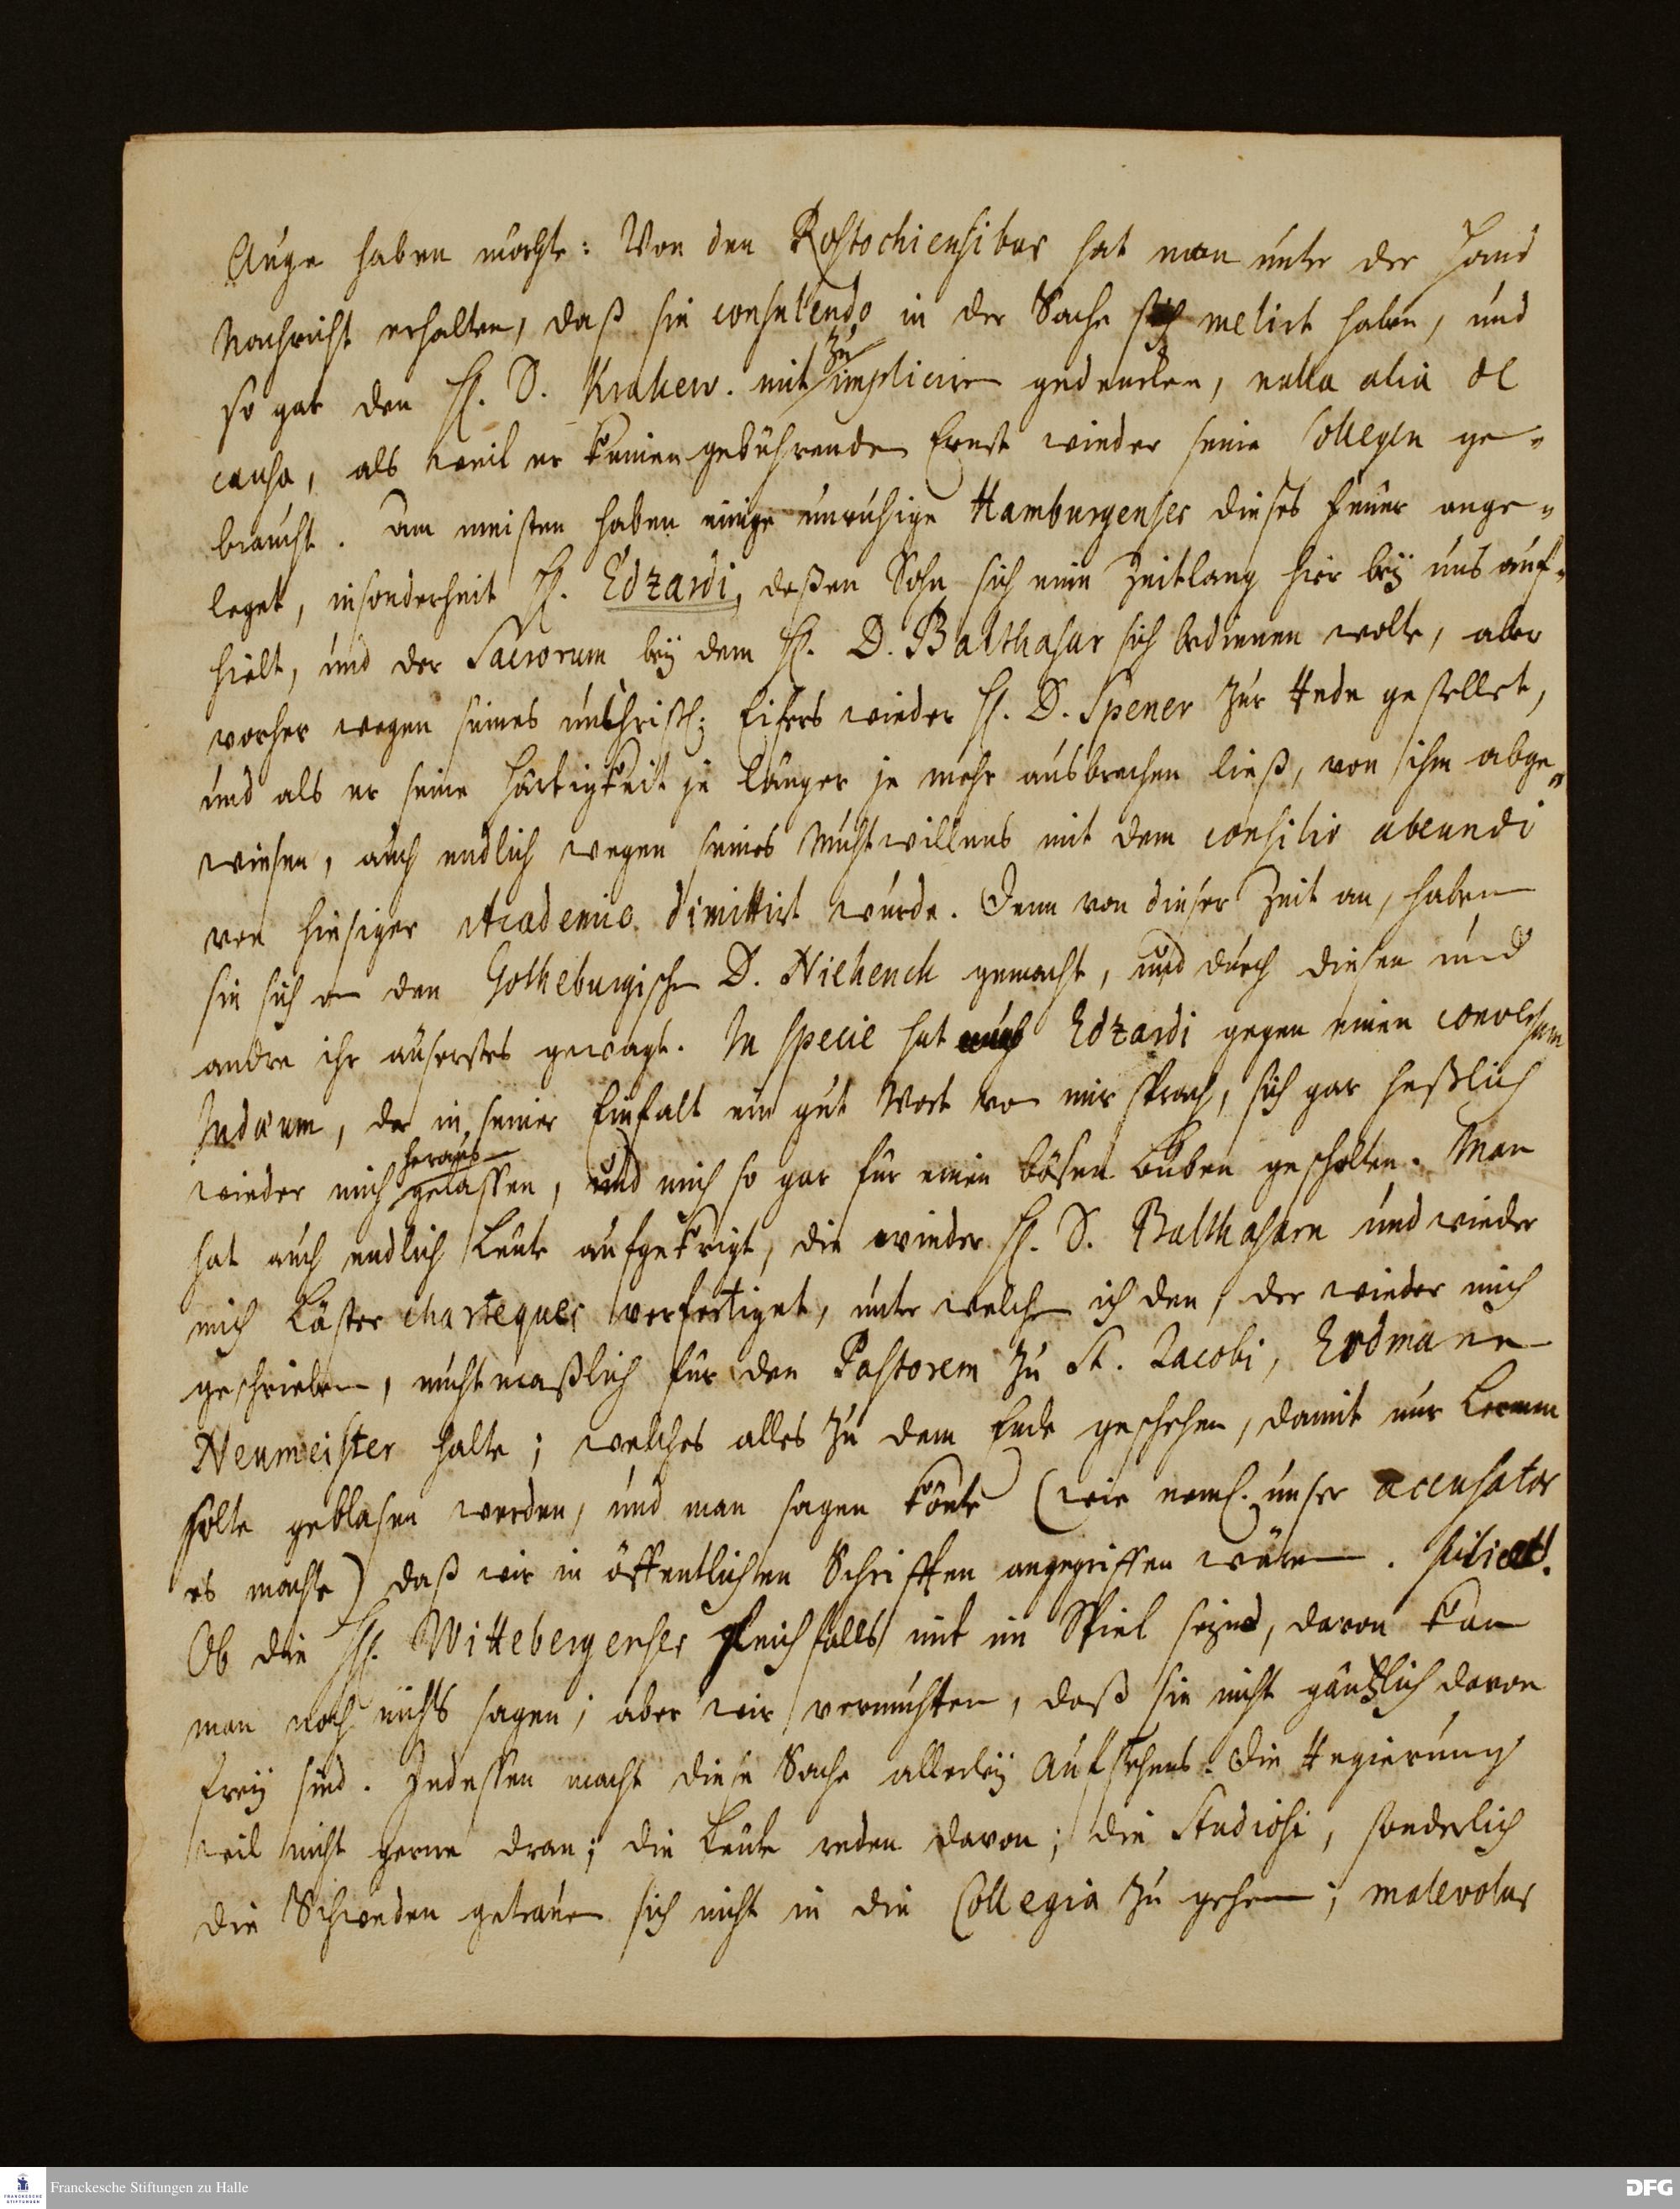 Auge haben mochte: Von den Rostochiensibus hat man unter der Hand
Nachricht erhalten, daß sie consulendo in der Sache sich melirt haben, und
so gar den H. D. Krakew. mit zu impliciren gedencken, nulla alia de
causa, als weil er keinen gebührenden Ernst wieder seine Collegen ge-
braucht. Am meisten haben einige unruhige Hamburgenses dieses Feuer ange-
leget, insonderheit H. Edzardi, deßen Sohn sich eine Zeitlang hier bey uns auf-
hielt, und der Sacrorum bey dem H. D. Balthasar sich bedienen wolte, aber
vorher wegen seines unchristl. Eifers wieder H. D. Spener zur Rede gestellet,
und als er seine Hartigkeit je länger je mehr ausbrechen ließ, von ihm abge-
wiesen, auch endlich wegen seines Muhtwillens mit dem consilio abeundi
von hiesiger Academie dimittirt wurde. Denn von dieser Zeit an, haben
sie sich an den Gotheburgischen D. Niehenck gemacht, und durch diesen und
andre ihr äuserstes gewagt. In specie hat Edzardi gegen einen conversum
Judæum, der in seiner Einfalt ein gut Wort von mir sprach, sich gar heßlich
wieder mich herausgelassen, und mich so gar für einen bösen Buben gescholten. Man
hat auch endlich Leute aufgekrigt, die wieder H. D. Balthasarn und wieder
mich Läster chartequen verfertiget, unter welchen ich den, der wieder mich
geschrieben, muhtmaßlich für den Pastorem zu St. Jacobi, Erdmann
Neumeister halte; welches alles zu dem Ende geschehen, damit nur Lermen
solte geblasen werden, und man sagen könte (wie neml. unser accusator
es machte) daß wir in öffentlichen Schrifften angegriffen wären. scilicet!
Ob die HH. Wittebergenses gleichfalls mit im Spiel seynd, davon kan
man noch nichts sagen; aber wir vermuhten, daß sie nicht gäntzlich davon
frey sind. Indessen macht diese Sache allerley Aufsehens. Die Regierung
wil nicht gerne dran; die Leute reden davon; die Studiosi, sonderlich
die Schweden getrauen sich nicht in die Collegia zu gehen; malevolus
Franckesche Stiftungen zu Halle
DFG